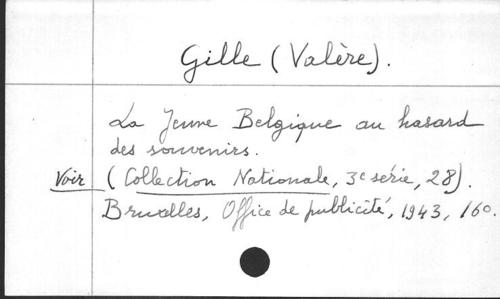 Gille (Valère).
La Jeune Belgique au hasard
des souvenirs.
Voir (Collection Nationale, 3e série, 28).
Bruxelles, Office de publicité, 1943, 160.